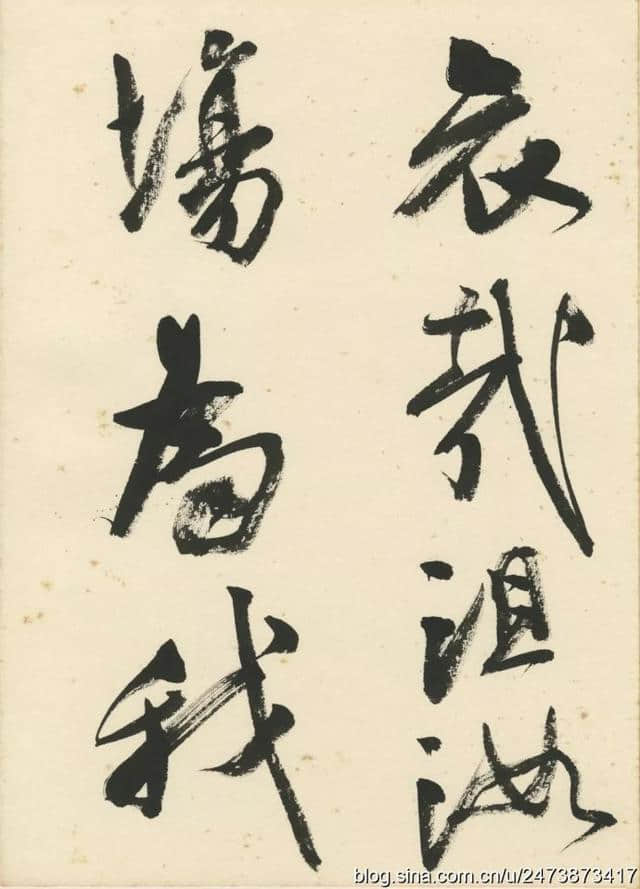 哀哉沮洳
場為我
blog.sina.com.cn/u/2473873417